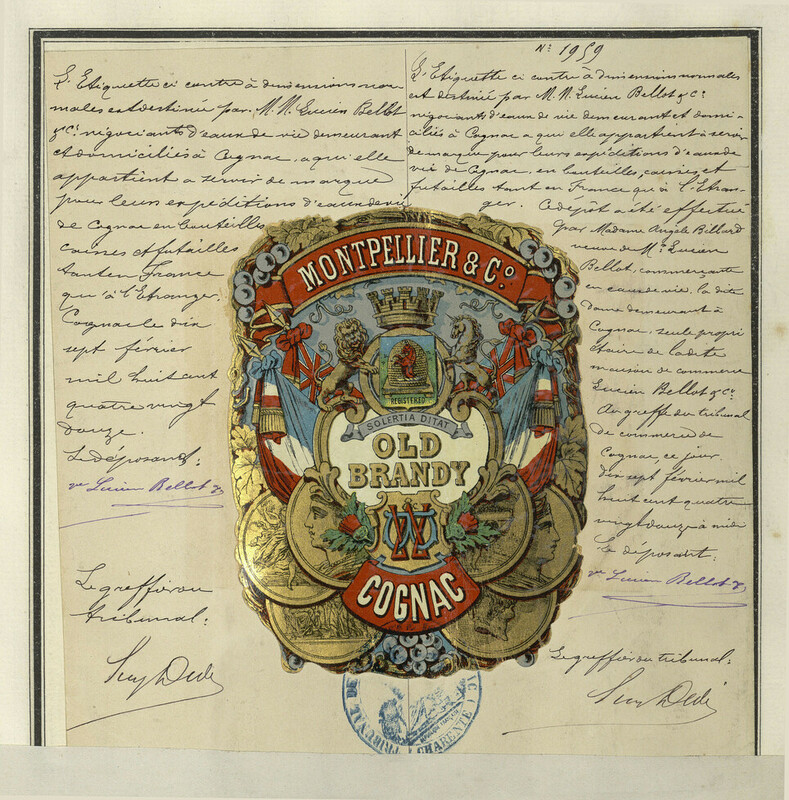 No 1959
L'Etiquette ci contre à dimensions nor
males est destinée par M.M. Lucien Bellot
& Cie négociants d'eaux de vie demeurant
et domiciliés à Cognac, a qui elle
appartient a servir de marque
pour leurs expéditions d'eaux de vie
de Cognac en bouteilles
caisses et futailles
tant en France
qu'à l'Etranger.
Cognac le dix
sept février
mil huit cent
quatre vingt
douze.
Le déposant:
ve Lucien Bellot &
Le greffier du
tribunal:
L'Etiquette ci contre à dimensions normales
est destinée par M.M. Lucien Bellot & Cie
négociants d'eaux de vie demeurant et domi-
ciliés à Cognac a qui elle appartient à servir
de marque pour leurs expéditions d'eaux de
vie de Cognac, en bouteilles, caisses et
futailles tant en France qu'à l'Etran-
ger. Ce dépôt a été effectué
par Madame Angèle Billard
veuve de Mr Lucien
Bellot, commerçante
en eaux de vie, la dite
dame demeurant à
Cognac, seule propri
étaire de la dite
maison de commerce
Lucien Bellot & Cie
Au greffe du tribunal
de commerce de
Cognac, ce jour
dix sept février mil
huit cent quatre
vingt douze à midi
Le déposant:
ve Lucien Bellot &
Le greffier du tribunal:
MONTPELLIER & Co.
REGISTERED
SOLERTIA DITAT
OLD
BRANDY
COGNAC
TRIBUNAL DE
CHARENTE